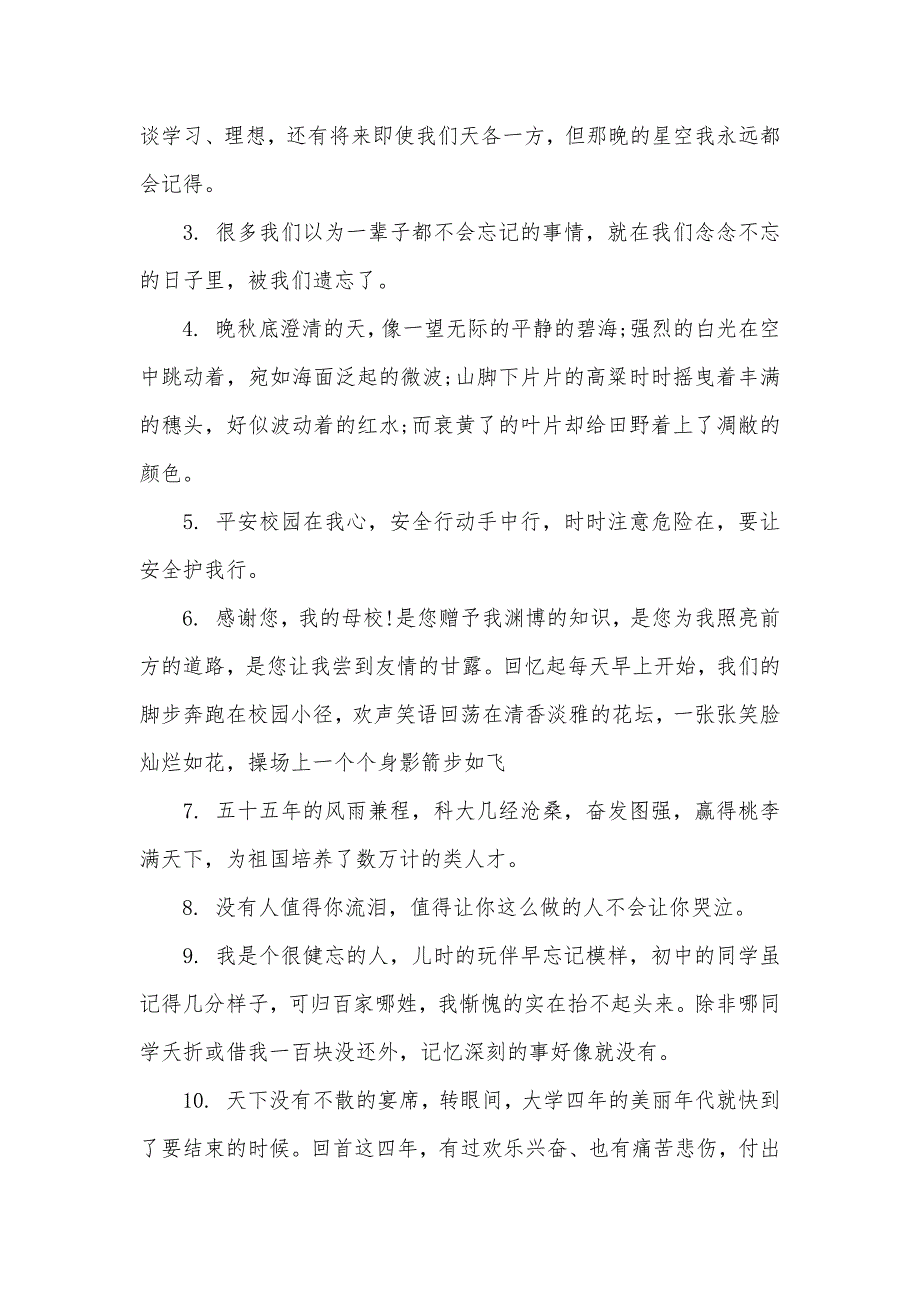 谈学习、理想，还有将来即使我们天各一方，但那晚的星空我永远都
会记得。
3. 很多我们以为一辈子都不会忘记的事情，就在我们念念不忘
的日子里，被我们遗忘了。
4. 晚秋底澄清的天，像一望无际的平静的碧海;强烈的白光在空
中跳动着，宛如海面泛起的微波;山脚下片片的高粱时时摇曳着丰满
的穗头，好似波动着的红水;而衰黄了的叶片却给田野着上了凋敝的
颜色。
5. 平安校园在我心，安全行动手中行，时时注意危险在，要让
安全护我行。
6. 感谢您，我的母校!是您赠予我渊博的知识，是您为我照亮前
方的道路，是您让我尝到友情的甘露。回忆起每天早上开始，我们的
脚步奔跑在校园小径，欢声笑语回荡在清香淡雅的花坛，一张张笑脸
灿烂如花，操场上一个个身影箭步如飞
7. 五十五年的风雨兼程，科大几经沧桑，奋发图强，赢得桃李
满天下，为祖国培养了数万计的类人才。
8. 没有人值得你流泪，值得让你这么做的人不会让你哭泣。
9. 我是个很健忘的人，儿时的玩伴早忘记模样，初中的同学虽
记得几分样子，可归百家哪姓，我惭愧的实在抬不起头来。除非哪同
学夭折或借我一百块没还外，记忆深刻的事好像就没有。
10. 天下没有不散的宴席，转眼间，大学四年的美丽年代就快到
了要结束的时候。回首这四年，有过欢乐兴奋、也有痛苦悲伤，付出